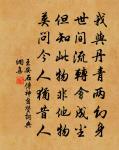 我與丹青兩幻身
世間流轉會成塵
但知此物非他物
莫問今人猶昔人
王安石傳神自贊詞典網真